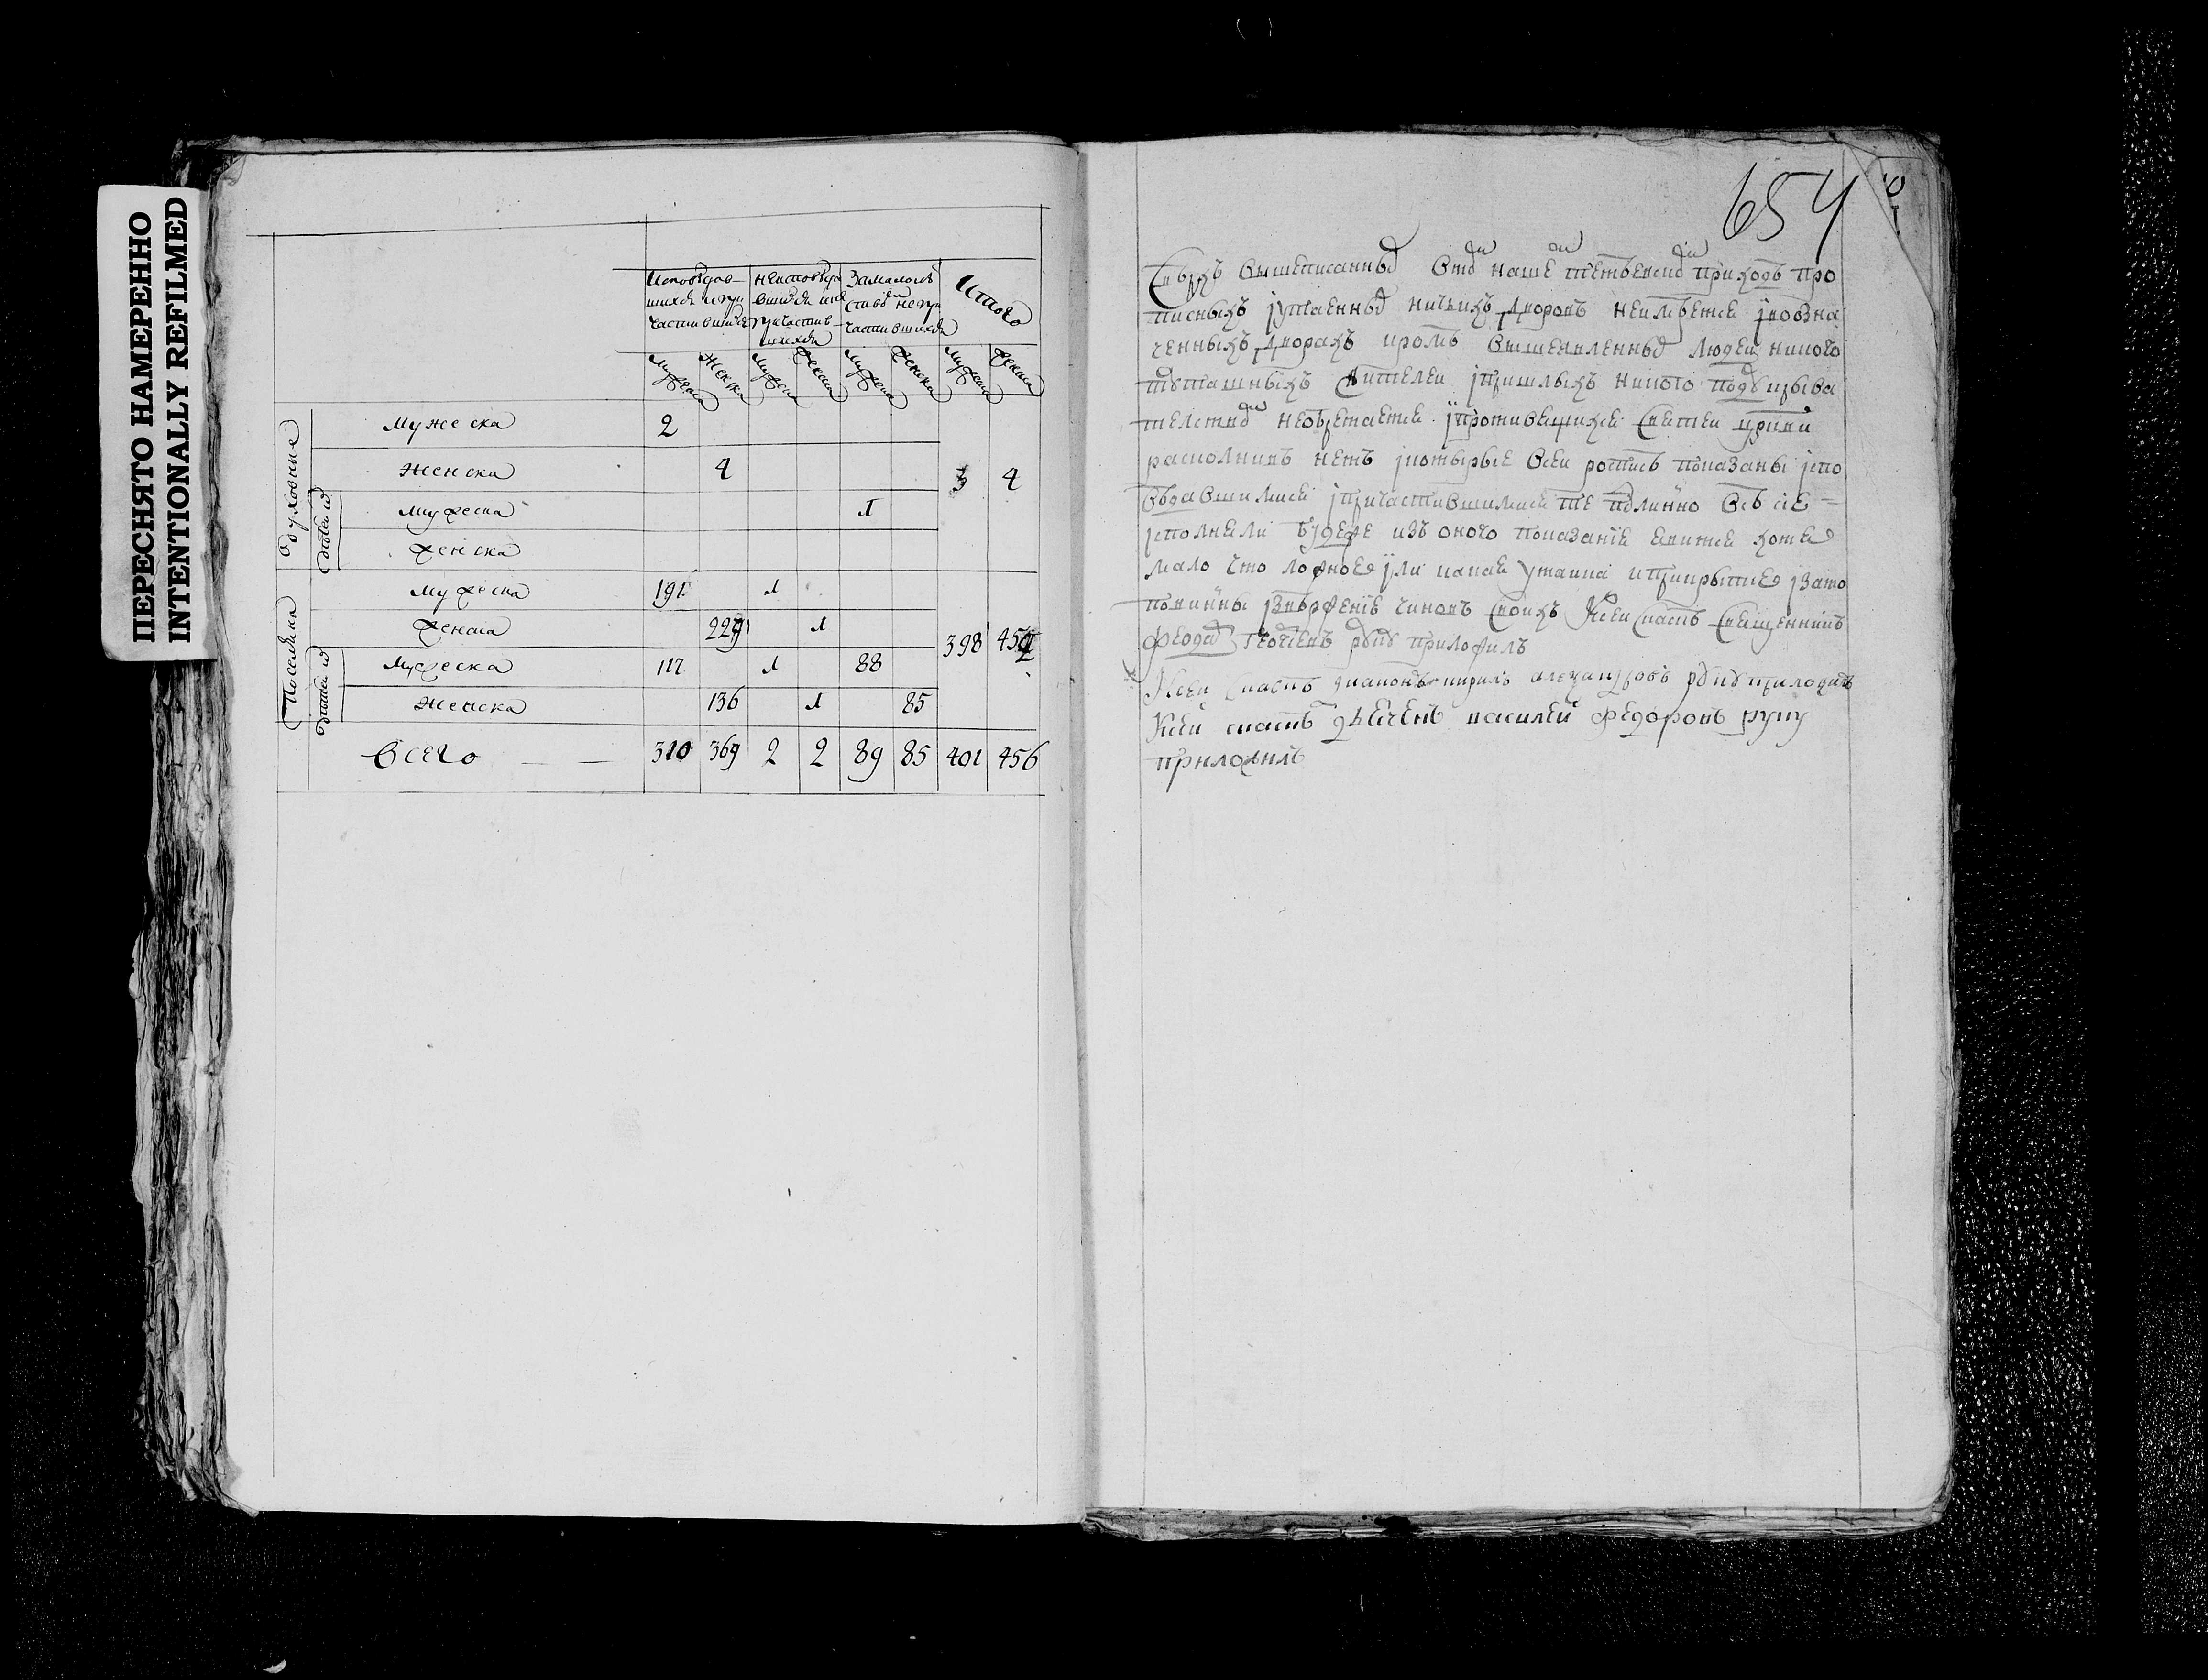 ПЕРЕСНЯТО НАМЕРЕННО
INTENTIONALLY REFILMED
Исповѣдав—
шихся и при
частившихся
неисповѣда
вшихся и не
причастив—
шихся
За малолѣ
ством не при
частившихся
Итого
Мужеска Женска Мужеска Женска Мужеска Женска Мужеска Женска
Духовные
Мужеска 2
Женска 4 3 4
детей их
Мужеска 1
женска
Поселяня
Мужеска 191 1
женска 229 1 398 452
детей их
Мужеска 117 1 88
Женска 136 1 85
Всего — — 310 369 2 2 89 85 401 456
654
Сверхъ вышеписанных в том нашем приходѣ про
писныхъ утаенных ничьихъ дворовъ неимѣется
ченныхъ дворахъ кромѣ вышеявленных людей никого
тутошныхъ жителей пришлыхъ никого под
необретается противящихся святей церкви
расколниковъ нетъ которые всей росписѣ показаны испо
вѣдавшимися причастившимися те подлинно все сие
исполнили буде же из оного показания явится хотя
мало что ложное или какая утайка и прикрытие за то
повинны извержение чиновъ своихъ К сей сказкѣ священникъ
Феодор руку приложилъ
К сей сказкѣ диаконъ кирилъ александровъ руку приложилъ
К сей сказкѣ дьячекъ василей федоровъ руку
приложилъ